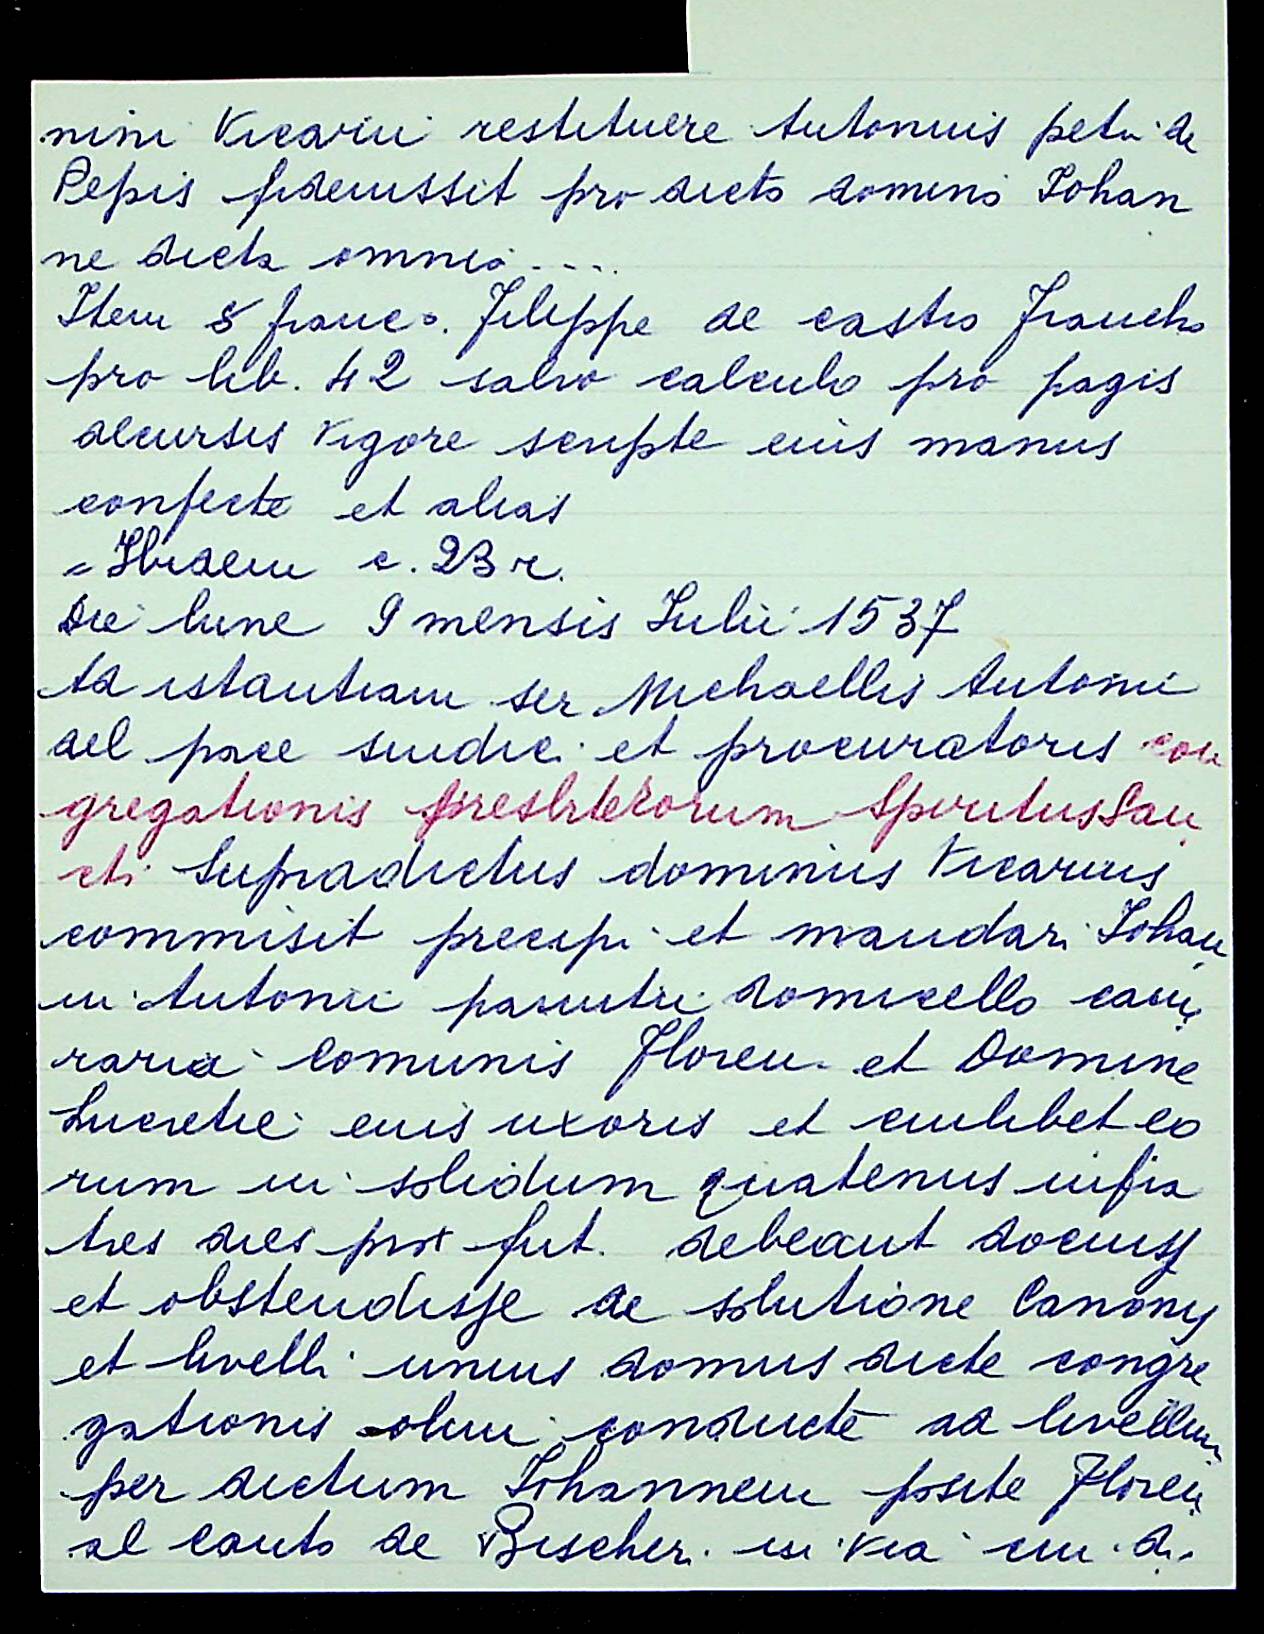 mini Vicarii restituere Antonius petri de
Pepis fideiussit pro dicto domino Iohan
ne dicta omnia....
Item s franc.o. Filippe de castro Francho
pro lib. 42 salvo calculo pro pagis
decursis vigore scripte eius manus
confecte et alias
= Ibidem c. 23 r.
Die lune 9 mensis Iulii 1537
Ad istantiam ser Michaellis Antonii
del pace sindic. et procuratoris con
gregationis presbiterorum Spiritus San
cti Supradictus dominus Vicarius
commisit precipi et mandari Iohan
ni Antonii domicello cam
raria Comunis Floren. et Domine
Lucretie eius uxoris et cuilibet eo
rum in solidum quatenus infra
tres dies prox fut. debeant docuiss
et obstendisse de solutione Canony
et livelli unius domus dicte congre
gationis olim conducte ad livellum
per dictum Iohannem posite Floren
al canto de Bischeri in via cui di.